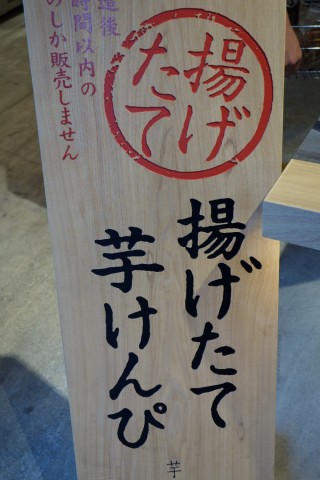 揚げ
たて
造後
時間以内の
のしか販売しません
揚げたて
芋けんぴ
芋